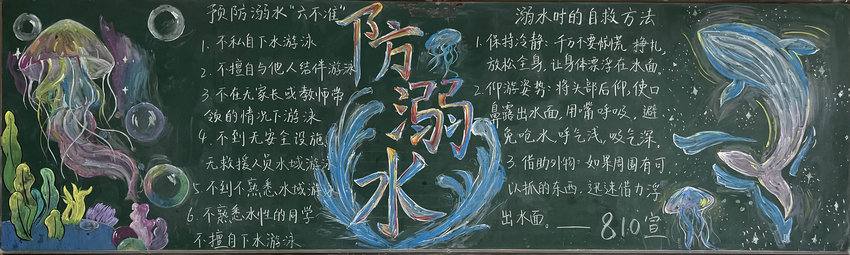 预防溺水"六不准"
1. 不私自下水游泳
2. 不擅自与他人结伴游泳
3. 不在无家长或教师带
领的情况下游泳
4. 不到无安全设施
无救援人员水域游泳
5. 不到不熟悉水域游泳
6. 不熟悉水性的同学
不擅自下水游泳
防溺水
溺水时的自救方法
1. 保持冷静:千万不要惊慌 挣扎,
放松全身,让身体漂浮在水面。
2. 仰游姿势:将头部后仰,使口
鼻露出水面,用嘴呼吸,避
免呛水,呼气浅,吸气深。
3. 借助外物:如果周围有可
以抓的东西,迅速借力浮
出水面。
——810宣